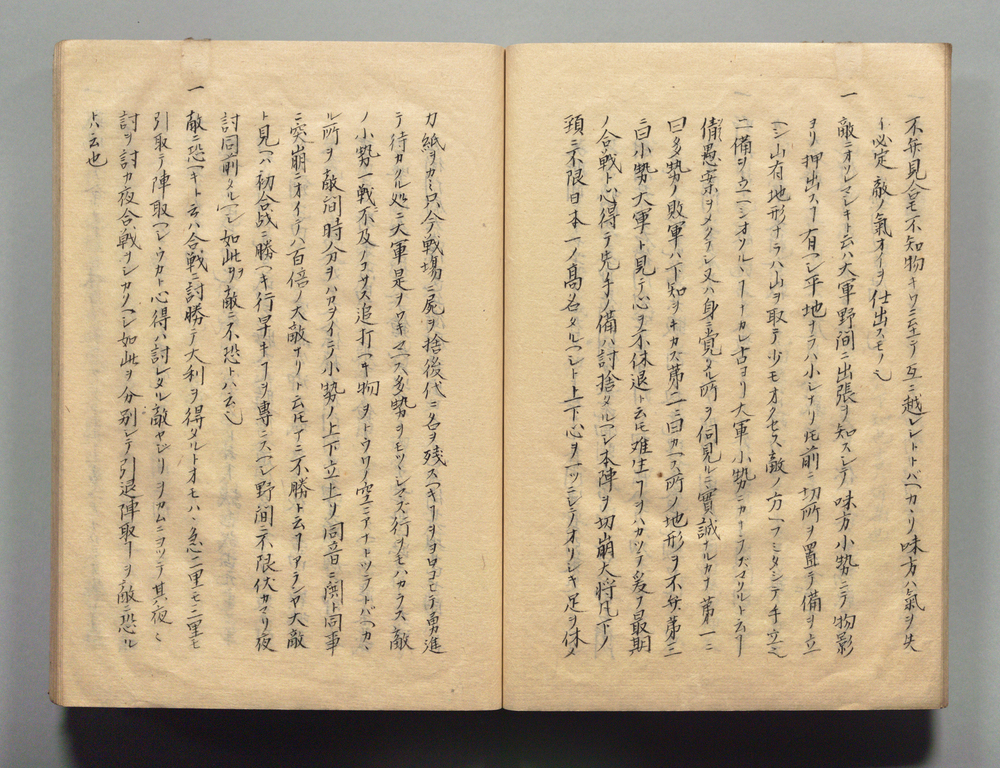 不弁見合モ不知物キワニ至テ互ニ越レトトバヘカリ味方ハ氣ヲ失
ヒ必定敵ノ氣オイヲ仕出スモノ也
一
敵ニオソレマシキト云ハ大軍野間ニ出張ヲ知スシテ味方小勢ニテ物影
ヨリ押出スヿ有ヘシ平地ナラハ小シナリ圧前ニ切所ヲ置テ備ヲ立
ヘシ山有地形ナラハ山ヲ取テ少モオクセス敵ノ方ヘフミタシテ手立
ニ備ヲ立ヘシオソルヽヿナカレ古ヨリ大軍小勢ニカナラズマクルト云ヿ
倩愚案ヲメクラスニ又ハ身ニ覚タル所ヲ伺見ルニ實誠ナルカナ第一ニ
曰多勢ノ敗軍ハ下知ヲキカズ第二ニ曰カヘス所ノ地形ヲ不弁第三
ニ曰小勢大軍ト見テ心ヲ不休退ト云圧难生ヿヲハカツテ爰ヲ最期
ノ合戦ト心得テ先手ノ備ハ討捨タルヘシ本陣ヲ切崩大将凡下ノ
頚ニ不限日本一ノ髙名タルヘシト上下心ヲ一ツニシテオソレキ足ヲ休メ
力紙ヲカミ只今戦場ニ屍ヲ捨後代ニ名ヲ残スヘキヿヲヨロコヒテ勇進
テ待カクル処ニ大軍是ヲワキマヘス多勢ヲモツレマズ行ヲモハカラス敵
ノ小勢一戦不及ノコサス追打ヘキ物ヲトウワノ空ニアナトツテトバヘカヽ
ル所ヲ敵間時分ヲハカライテ小勢ノ上下立上リ同音ニ鬨ト同事
ニ突崩ニオイテハ百倍ノ大敵ナリト云圧アニ不勝ト云ヿアランヤ大敵
ト見ヘハ初合战ニ勝ヘキ行早キヿヲ專ニスヘシ野間ニ不限伏カマリ夜
討同前タルヘシ如此ヲ敵ニ不恐トハ云也
一
敵ニ恐ヘキト云ハ合戦ニ討勝テ大利ヲ得タルトオモハヽ急二里モ三里モ
引取テ陣取ヘシウカト心得ハ討レタル敵ヤシリヲカムニヨツテ其夜ニ
討ヲ討カ夜合戦ヲシカクヘシ如此ヲ分別シテ引退陣取ヿヲ敵ニ恐ル
トハ云也